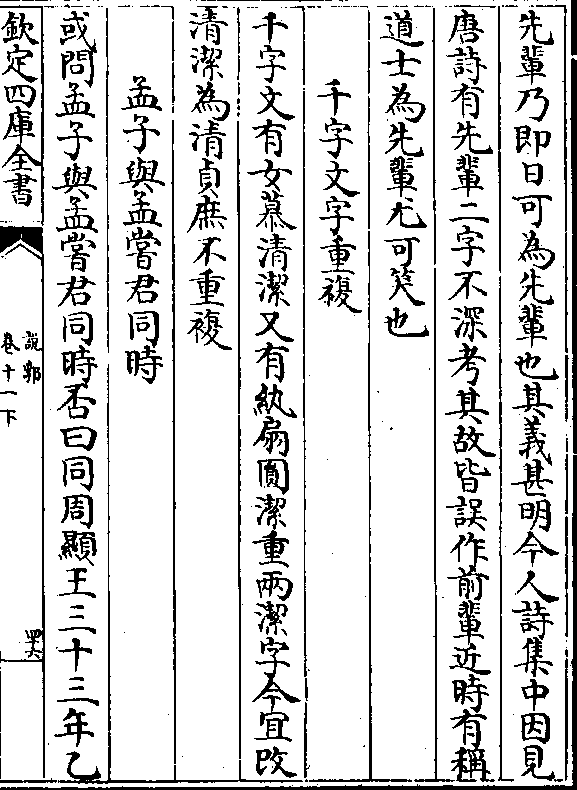 先輩乃即日可為先輩也其義甚明今人詩集中因見
唐詩有先輩二字不深考其故皆誤作前輩近時有稱
道士為先輩尤可笑也
千字文字重複
千字文有女慕清潔又有紈扇圓潔重兩潔字今宜改
清潔為清貞庶不重複
孟子與孟嘗君同時
或問孟子與孟嘗君同時否曰同周顯王三十三年乙
欽定四庫全書
說郛
卷十一下
四六